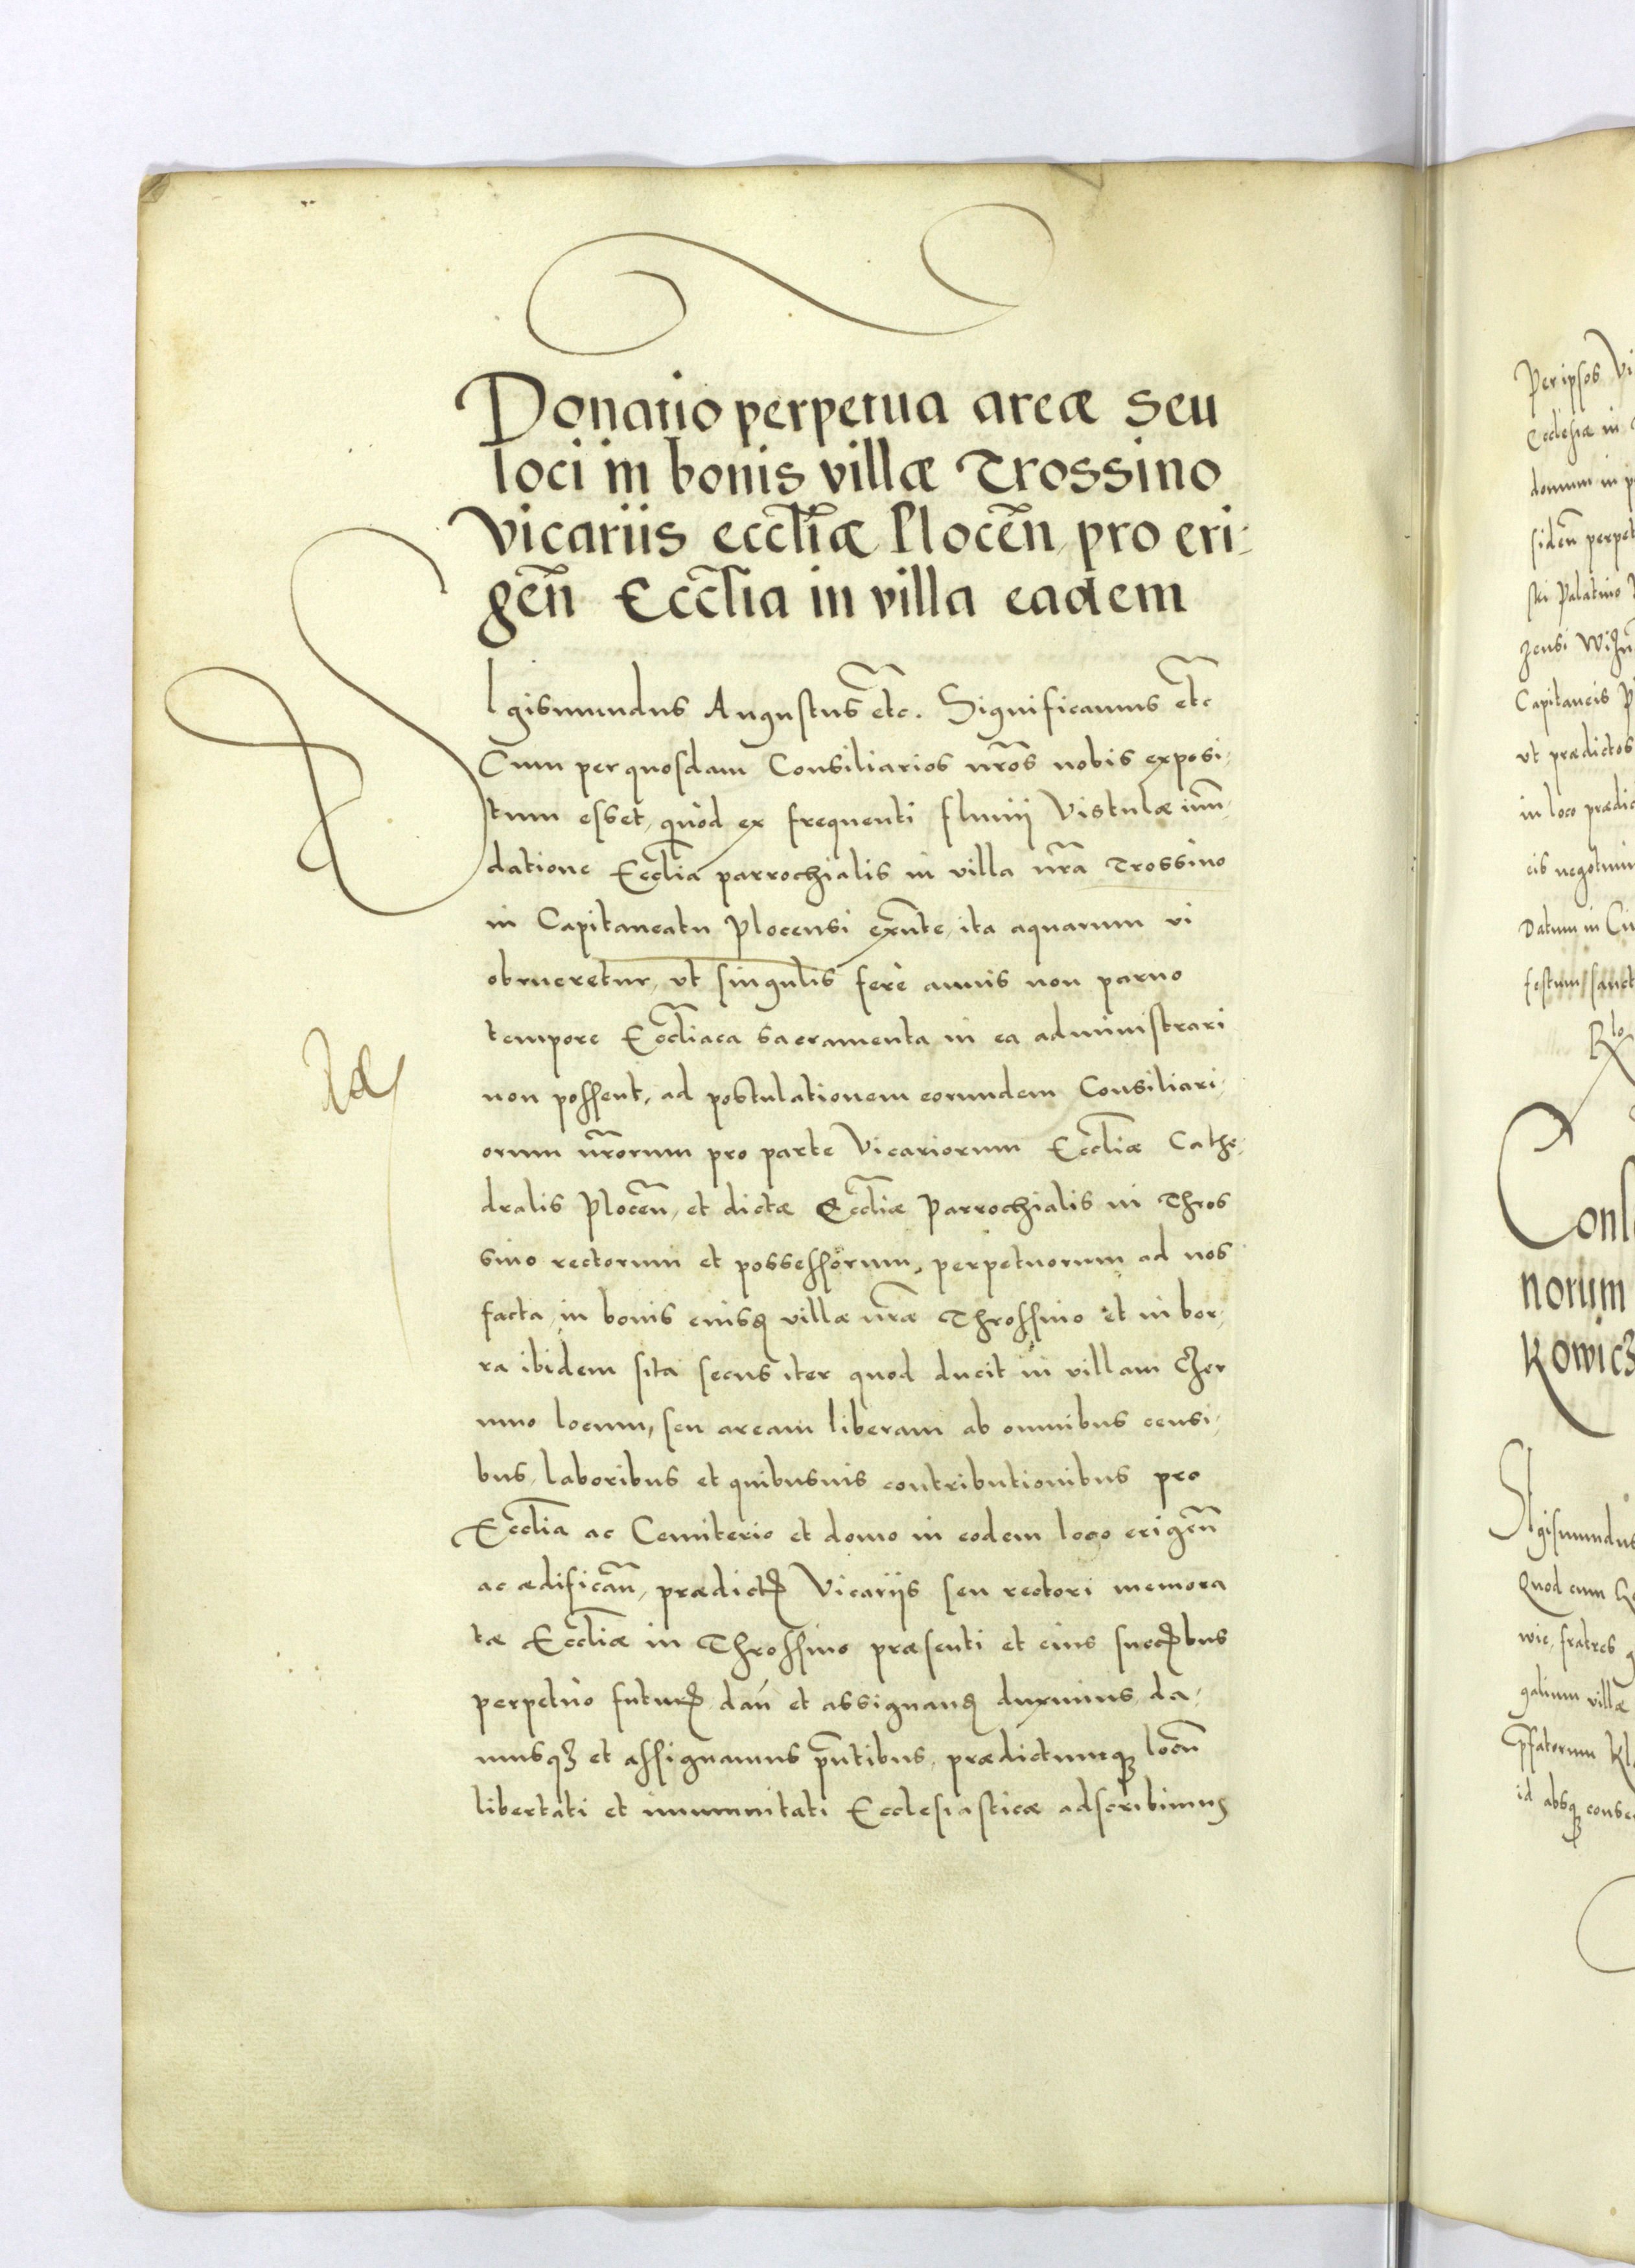 Donatio perpetua areæ seu
loci in bonis villæ Trossino
Vicariis eccl̃iæ Plocen̄ pro eri-
gen̄ Eccl̃ia in villa eadem
Sigismundus Augustus etc. Significamus etc
Cum per quosdam Consiliarios nr̃os nobis exposi-
tum esset, quòd ex frequenti fluuij Vistulæ inũ-
datione Eccl̃ia parrochialis in villa nr̃a Trossino
in Capitaneatu Plocensi exñte, ita aquarum vi
obrueretur, vt singulis ferè annis non paruo
tempore Eccl̃iaca sacramenta in ea administrari
non possent, ad postulationem eorundem Consiliari-
orum nr̃orum pro parte Vicariorum Eccl̃iæ Cathe-
dralis Plocen̄, et dictæ Eccl̃iæ Parrochialis in Thros
sino rectorum et possessorum, perpetuorum ad nos
facta, in bonis eiusd villæ nr̃æ Throssino et in bor-
ra ibidem sita secus iter quod ducit in villam Czer
nino locum, seu aream liberam ab omnibus censi-
bus, laboribus et quibusuis contributionibus pro
Eccl̃ia ac Cemiterio et domo in eodem loco erigen̄
ac ædifican̄, prædictis Vicariis seu rectori memora
tæ Eccl̃iæ in Throssino præsenti et eius succribus
perpetuo futuris dan̄ et assignand duximus, da-
musqȝ et assignamus pñtibus, prædictumqȝ locũ
libertati et immunitati Ecclesiasticæ adscribimus
Per ipsos Vi
Ecclesiæ in
domum in p
siden̄ perpet
ski Palatino
zensi Wizn
Capitaneis P
vt prædictos
in loco prædic
eis negotium
Datum in Ci
festum sanct
Cons
norum
kowicz
Sigismundus
Quod cum
wie, fratres
galium villæ
p̃fatorum Kl
id absqȝ conse